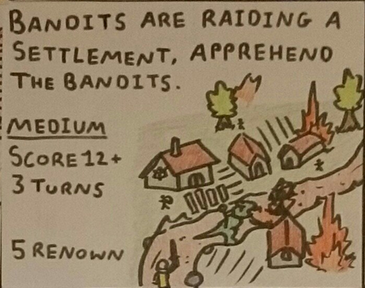 BANDITS ARE RAIDING A
SETTLEMENT, APPREHEND
THE BANDITS.
MEDIUM
SCORE 12+
3 TURNS
5 RENOWN